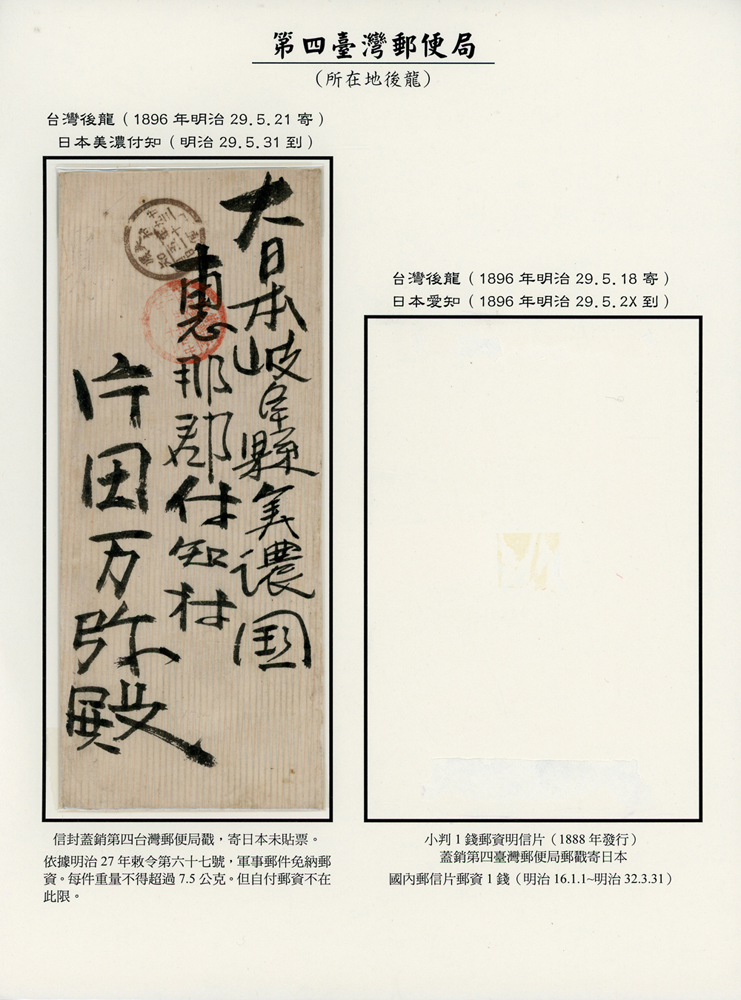 第四臺灣郵便局
（所在地後龍）
台灣後龍（1896 年明治 29.5.21 寄）
日本美濃付知（明治 29.5.31 到）
大日本岐阜縣美濃国
惠那郡付知村
片田万弥殿
信封蓋銷第四台灣郵便局戳，寄日本未貼票。
依據明治 27 年敕令第六十七號，軍事郵件免納郵
資。每件重量不得超過 7.5 公克。但自付郵資不在
此限。
台灣後龍（1896 年明治 29.5.18 寄）
日本愛知（1896 年明治 29.5.2X 到）
小判 1 錢郵資明信片（1888 年發行）
蓋銷第四臺灣郵便局郵戳寄日本
國內郵信片郵資 1 錢（明治 16.1.1~明治 32.3.31）